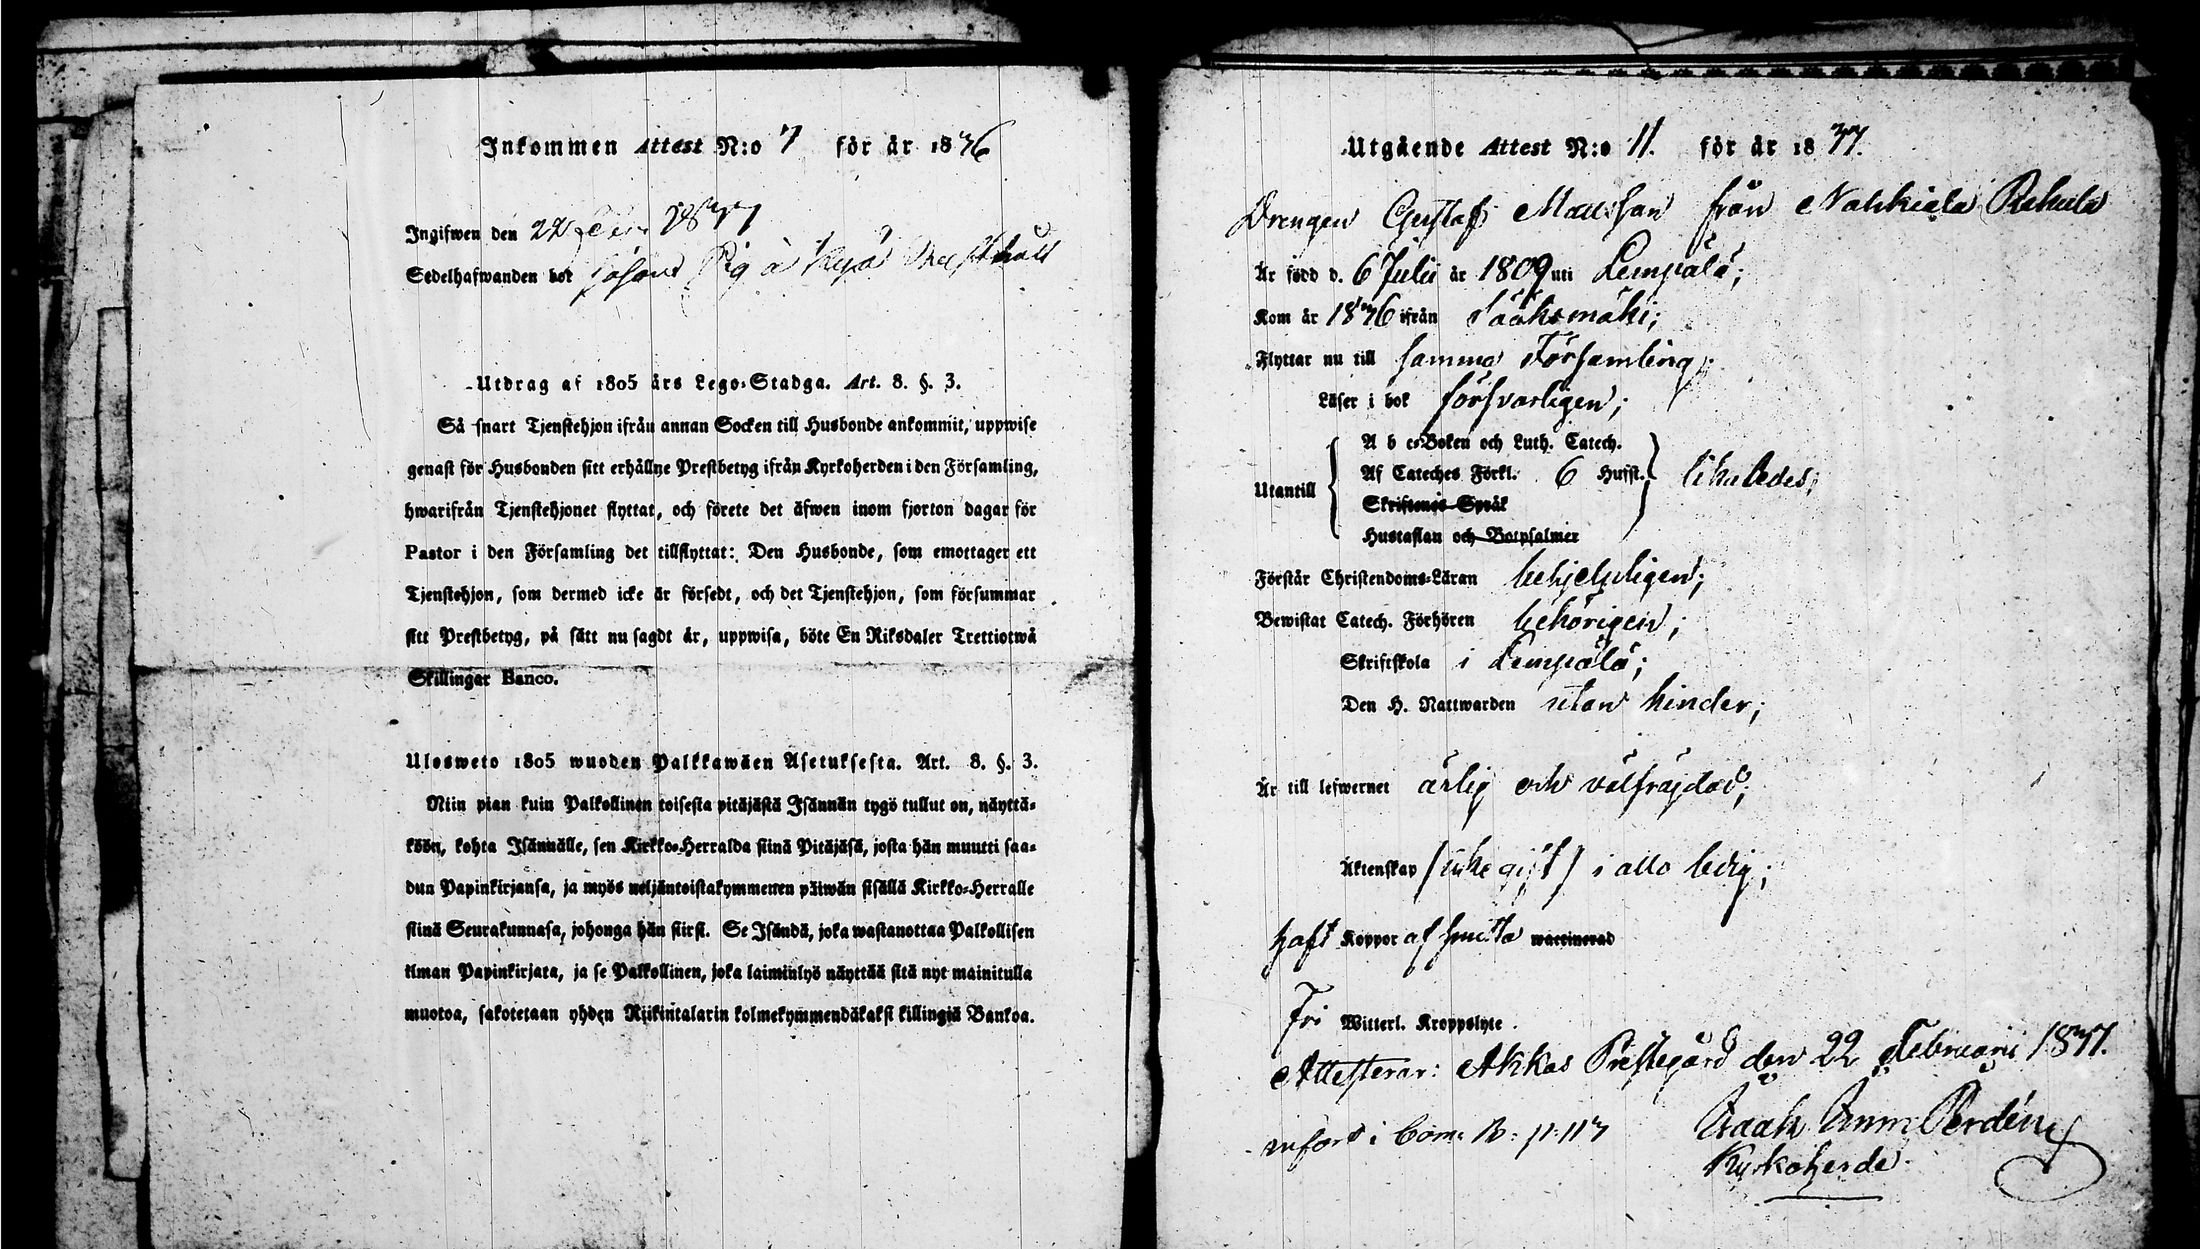 Inkommen Attest N:o 7 för år 1836
Ingifwen den 22 1837
Sedelhafwanden bor såsom
Utdrag af 1805 års Lego-Stadga. Art. 8. §. 3.
Så snart Tjenstehjon ifrån annan Socken till Husbonde ankommit, uppwise
genast för Husbonden sitt erhållne Prestbetyg ifrån Kyrkoherden i den Församling,
hwarifrån Tjenstehjonet flyttat, och förete det äfwen inom fjorton dagar för
Pastor i den Församling det tillflyttat: Den Husbonde, som emottager ett
Tjenstehjon, som dermed icke är försedt, och det Tjenstehjon, som försummar
sitt Prestbetyg, på sätt nu sagdt är, uppwisa, böte En Riksdaler Trettiotwå
Skillingar Banco.
Ulosweto 1805 wuoden Palkkawäen Asetuksesta. Art. 8. §. 3.
Niin pian kuin Palkollinen toisesta pitäjästä Isännän tygö tullut on, näyttä-
köön, kohta Isännälle, sen Kirkko-Herralda siinä Pitäjäsä, josta hän muutti saa-
dun Papinkirjansa, ja myös neljäntoistakymmenen päiwän sisällä Kirkko-Herralle
siinä Seurakunnasa, johonga hän siirsi. Se Isändä, joka wastanottaa Palkollisen
ilman Papinkirjata, ja se Palkollinen, joka laiminlyö näyttää sitä nyt mainitulla
muotoa, sakotetaan yhden Riikintalarin kolmekymmendäkaksi killingiä Bankoa.
Utgående Attest N:o 11. för år 1837.
Drengen Gustaf Mattsson från Nahkiala Rekula
Är född d. 6 Julii år 1809 uti Lempälä;
Kom år 1836 ifrån Sääksmäki;
Flyttar nu till samma Församling;
Läser i bok försvarligen;
A b c-Boken och Luth. Catech.
Utantill Af Cateches Förkl. 6 Hufst. likaledes;
Skriftenes Språk
Hustaflan och Botpsalmer
Förstår Christendoms-Läran behjelpligen;
Bewistat Catech. Förhören behörigen;
Skriftskola i Lempälä;
Den H. Nattwarden utan hinder;
Är till lefwernet ärlig och välfräjdad;
Äktenskap (icke gift) i allo ledig;
haft Koppor af smitta waccinerad
Fri Witterl. Kroppslyte.
Attesterar: Akkas Prestegård den 22 Februarii 1837.
införd i Com: B: p: 117
Isaak Nordén
Kyrkoherde.